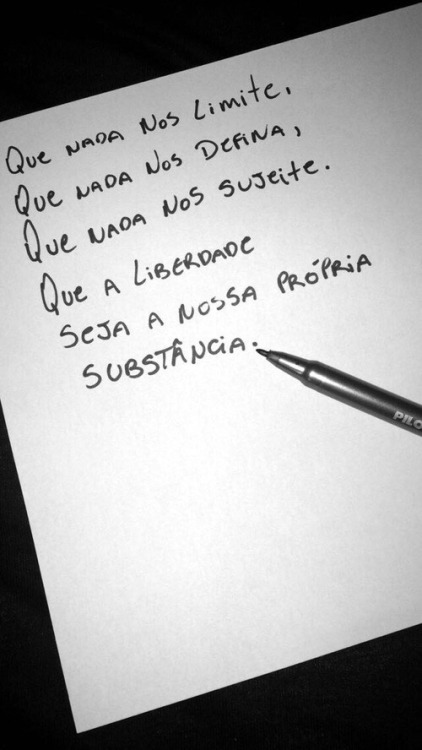 Que nada nos limite,
Que nada nos defina,
Que nada nos sujeite.
Que a liberdade
seja a nossa própria
substância.
PILO